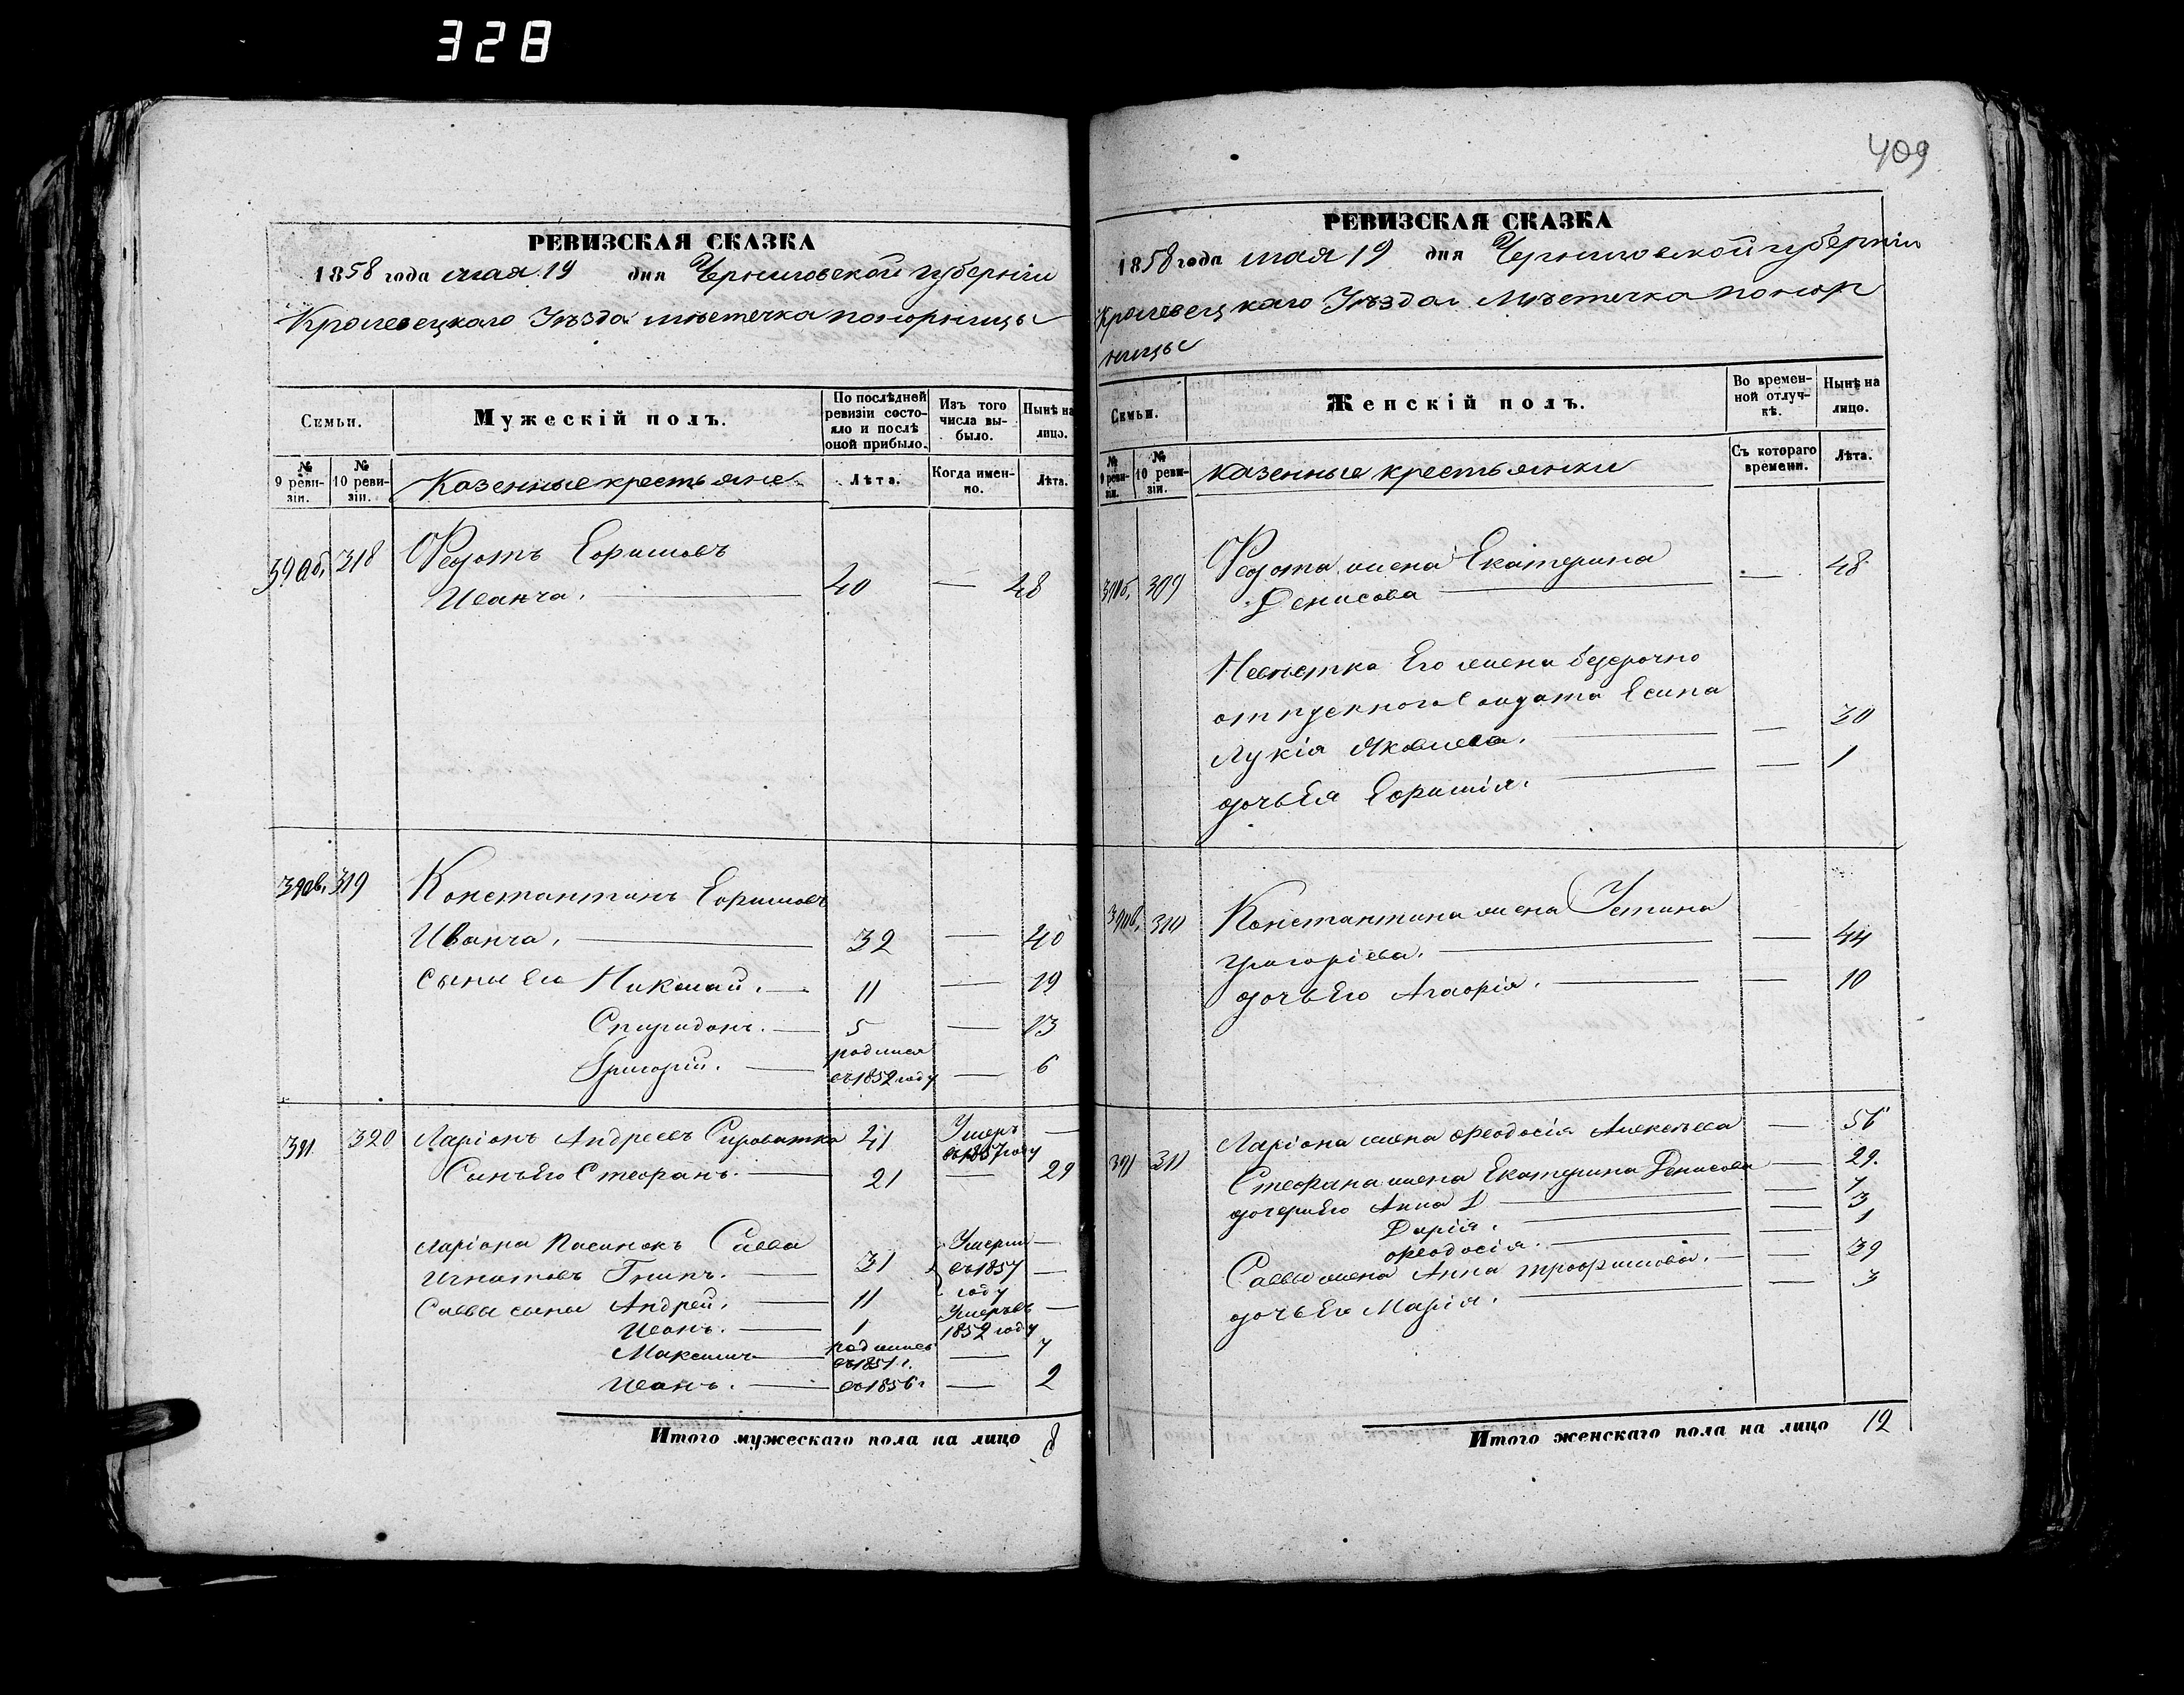 328
РЕВИЗСКАЯ СКАЗКА
1858 года мая 19 дня Черниговской губерніи
Кролевецкаго Уѣзда мѣстечка Понорницы
Семьи.
Мужескій полъ.
По послѣдней ревизіи состояло и послѣ оной прибыло.
Изъ того числа выбыло.
Нынѣ на лицо.
№ 9 ревизіи.
№ 10 ревизіи.
Казенные крестьяне
Лѣта.
Когда именно.
Лѣта.
390б. 318 Федотъ Ефимовъ
Иванча. 40 — 48
390в. 319 Константинъ Ефимовъ
Иванча. 32 — 40
Сыны Его Николай. 11 — 19
Спиридонъ. 5 — 13
Григорій. родился въ 1852 году — 6
391 320 Ларіонъ Андреевъ Сироватка 41 Умеръ въ 1857 году —
Сынъ Его Стефанъ. 21 — 29
Ларіона Пасынокъ Савва
Игнатовъ 31 Умерли въ 1857 году —
Саввы сыны Андрей. 11 —
Иванъ. 1 Умеръ въ 1852 году —
Максимъ родились въ 1851 г. — 7
Иванъ. въ 1856 г — 2
Итого мужескаго пола на лицо 8
409
РЕВИЗСКАЯ СКАЗКА
1858 года мая 19 дня Черниговской губерніи
Кролевецкаго Уѣзда Мѣстечка Понор
ницы
Семьи.
Женскій полъ.
Во временной отлучкѣ.
Нынѣ на лицо.
№ 9 ревизіи.
№ 10 ревизіи.
казенные крестьянки
Съ котораго времени.
Лѣта.
390б. 309 Федота жена Екатерина
Денисова — 48
Невѣстка Его жена безсрочно
отпускного Солдата Есипа
Лукія Яковлева. — 30
дочь Ея Ефимія. — 1
390в. 310 Константина жена Устина
Григоріева. — 44
дочь Его Агафія. — 10
391 311 Ларіона жена Феодосія Алексѣева — 56
Стефана жена Екатерина Денисова — 29.
дочери Его Анна — 7
Дарія. — 3
Феодосія. — 1
Саввы жена Анна Трофимова. — 39
дочь Его Марія. — 3
Итого женскаго пола на лицо 12